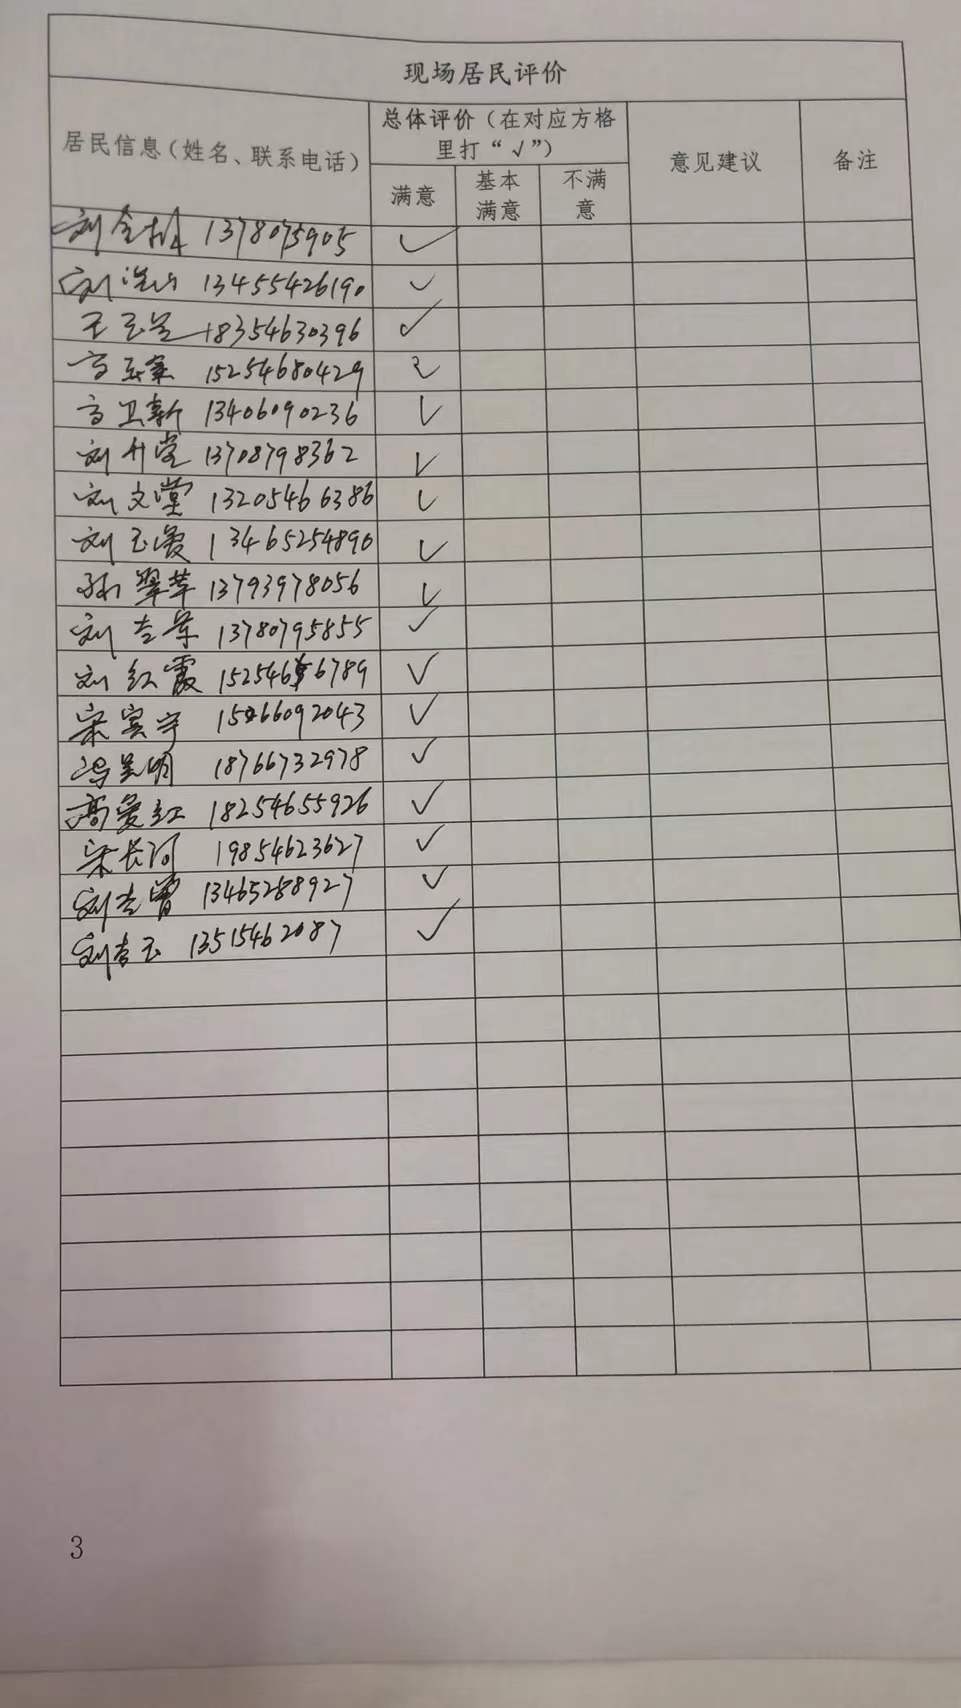 现场居民评价
居民信息(姓名、联系电话)
总体评价(在对应方格里打“√”)
意见建议
备注
满意
基本满意
不满意
刘 1378075905 ✓
刘 13455426190 ✓
王玉兰 18354630396 ✓
高 15254680429 ✓
高卫新 13406090236 ✓
刘升堂 13708798362 ✓
刘文堂 13205466386 ✓
刘玉霞 13465254890 ✓
孙翠苹 13793978056 ✓
刘 13780795855 ✓
刘红霞 ✓
宋寰宇 15066092043 ✓
冯 明 18766732978 ✓
高爱红 18254655926 ✓
宋长河 19854623627 ✓
刘 曾 13465288927 ✓
刘 玉 13515462087 ✓
3